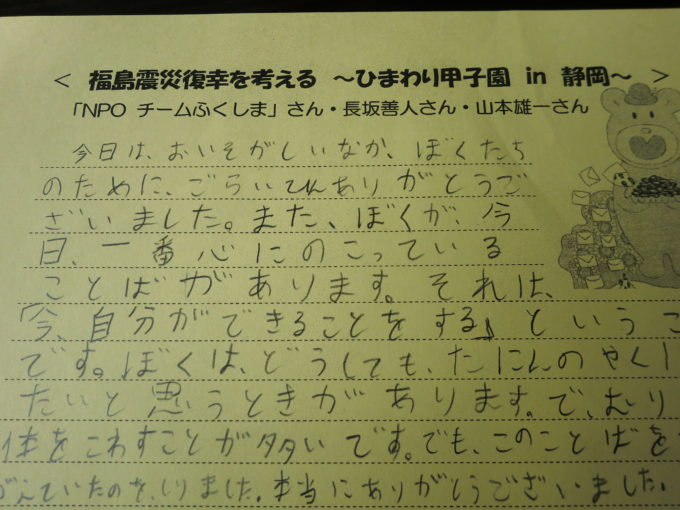 ＜ 福島震災復幸を考える ～ひまわり甲子園 in 静岡～ ＞
「NPO チームふくしま」さん・長坂善人さん・山本雄一さん
今日は、おいそがしいなか、ぼくたち
のために、ごらいひんありがとうご
ざいました。また、ぼくが、今
日、一番心にのこっている
ことばがあります。それは、
「今、自分ができることをする」というこ
です。ぼくは、どうしても、たにんのやくに
たいと思うときがあります。で、むり
体をこわすことが多いです。でも、このことばを
ていたのを、しりました。本当にありがとうございました。